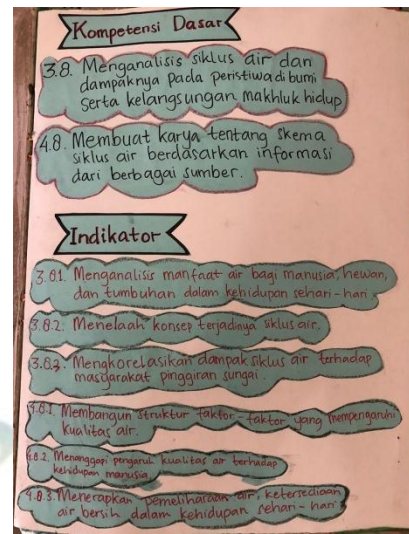 Kompetensi Dasar
3.8. Menganalisis siklus air dan
dampaknya pada peristiwa di bumi
serta kelangsungan makhluk hidup
4.8. Membuat karya tentang skema
siklus air berdasarkan informasi
dari berbagai sumber.
Indikator
3.8.1. Menganalisis manfaat air bagi manusia, hewan,
dan tumbuhan dalam kehidupan sehari-hari
3.8.2. Menelaah konsep terjadinya siklus air.
3.8.3. Mengkorelasikan dampak siklus air terhadap
masyarakat pinggiran sungai.
4.8.1. Membangun struktur faktor-faktor yang mempengaruhi
kualitas air.
4.8.2. Menanggapi pengaruh kualitas air terhadap
kehidupan manusia.
4.8.3. Menerapkan pemeliharaan air, ketersediaan
air bersih dalam kehidupan sehari-hari